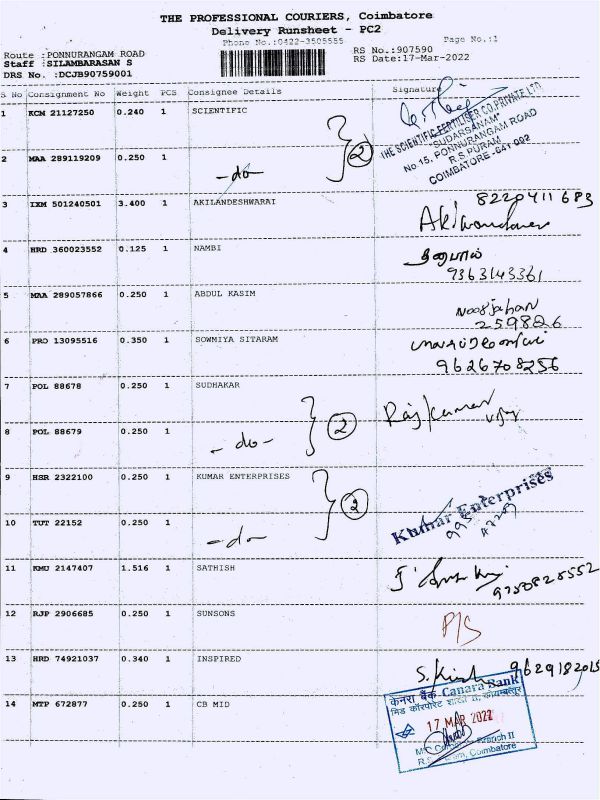 THE PROFESSIONAL COURIERS, Coimbatore
Delivery Runsheet - PC2
Phone No.:0422-3505555 Page No.:1
Route :PONNURANGAM ROAD RS No.:907590
Staff :SILAMBARASAN S RS Date:17-Mar-2022
DRS No. :DCJB90759001
S No Consignment No Weight PCS Consignee Details Signature
1 KCM 21127250 0.240 1 SCIENTIFIC
THE SCIENTIFIC FERTILISER CO.PRIVATE LTD
"SUDARSANAM"
No 15, PONNURANGAM ROAD
R.S PURAM
COIMBATORE -641 002
2 MAA 289119209 0.250 1 -do- 2
3 IXM 501240501 3.400 1 AKILANDESHWARAI 8220411683
4 HRD 360023552 0.125 1 NAMBI
9363143361
5 MAA 289057866 0.250 1 ABDUL KASIM Noorjahan
259826
6 PRO 13095516 0.350 1 SOWMIYA SITARAM
9626708256
7 POL 88678 0.250 1 SUDHAKAR Rajkumar
8 POL 88679 0.250 1 -do- 2
9 HSR 2322100 0.250 1 KUMAR ENTERPRISES 2 Kumar Enterprises
10 TUT 22152 0.250 1 -do-
11 KMU 2147407 1.516 1 SATHISH 9750828552
12 RJP 2906685 0.250 1 SUNSONS P/S
13 HRD 74921037 0.340 1 INSPIRED S. 9629182015
14 MTP 672877 0.250 1 CB MID
केनरा बैंक Canara Bank
मिड कॉरपोरेट शाखा II, कोयम्बत्तूर
17 MAR 2022
Branch II
Coimbatore